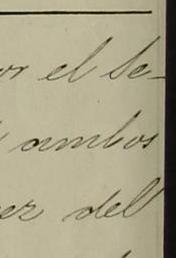 or el Se-
ambos
ez del